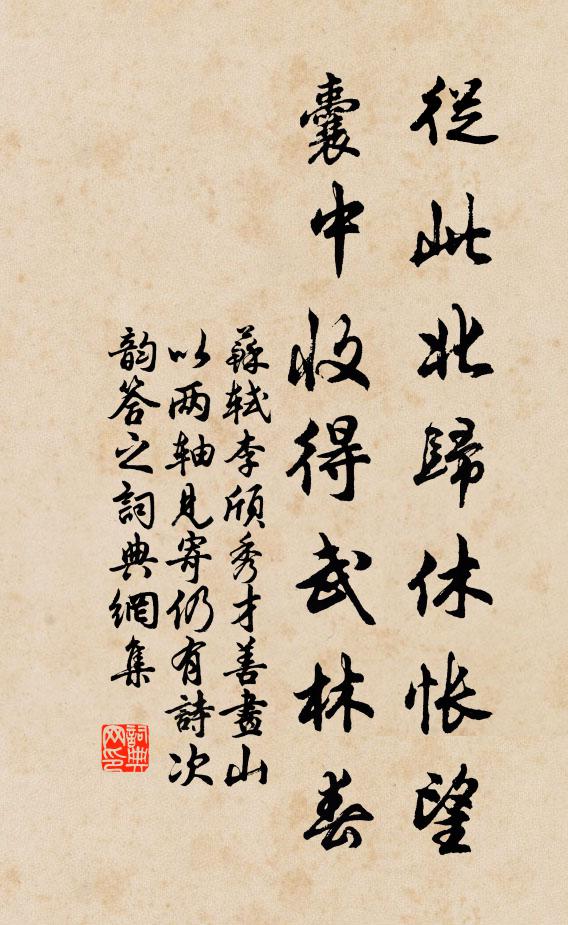 從此北歸休悵望
囊中收得武林春
蘇軾李頎秀才善畫山
以兩軸見寄仍有詩次
韵答之詞典網集
詞典网印